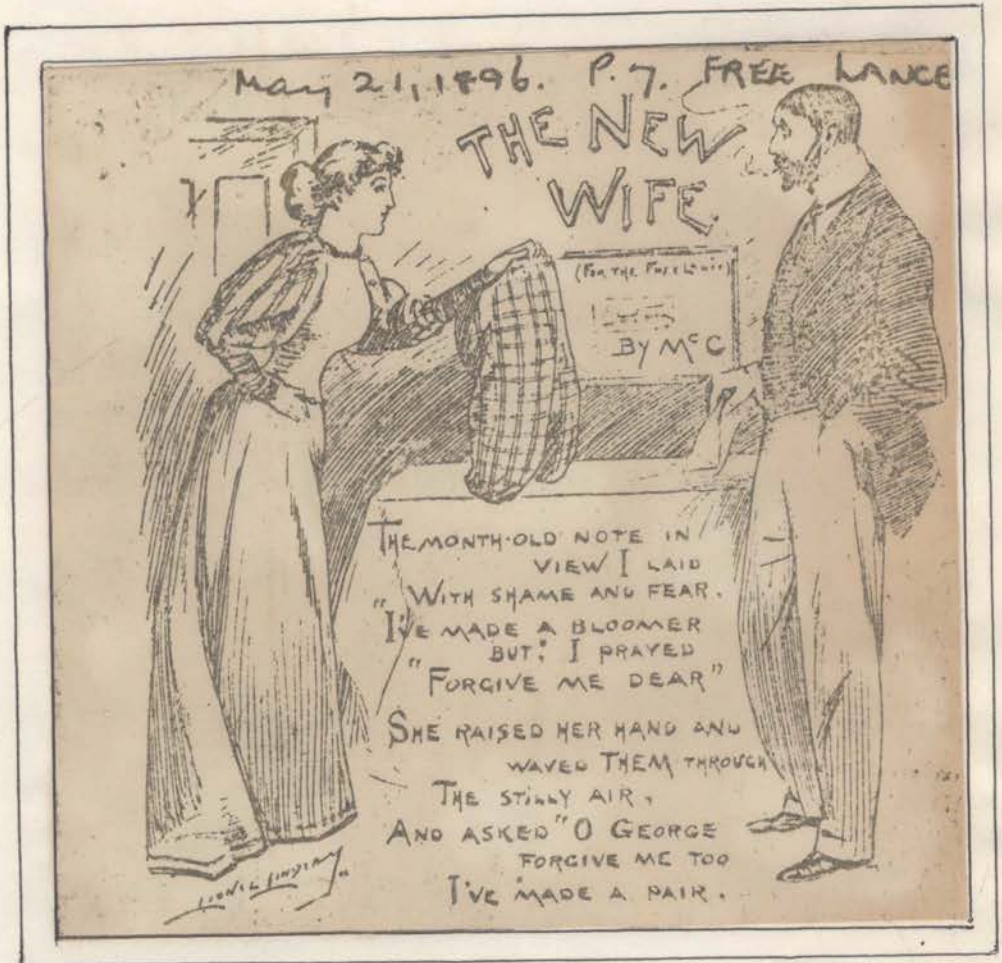 May 21, 1896. P. 7. FREE LANCE
THE NEW
WIFE.
(FOR THE FREE LANCE)
BY McC
THE MONTH-OLD NOTE IN
VIEW I LAID
WITH SHAME AND FEAR.
"I'VE MADE A BLOOMER
BUT," I PRAYED
"FORGIVE ME DEAR"
SHE RAISED HER HAND AND
WAVED THEM THROUGH
THE STILLY AIR,
AND ASKED "O GEORGE
FORGIVE ME TOO
I'VE MADE A PAIR.
LIONEL LINDSAY